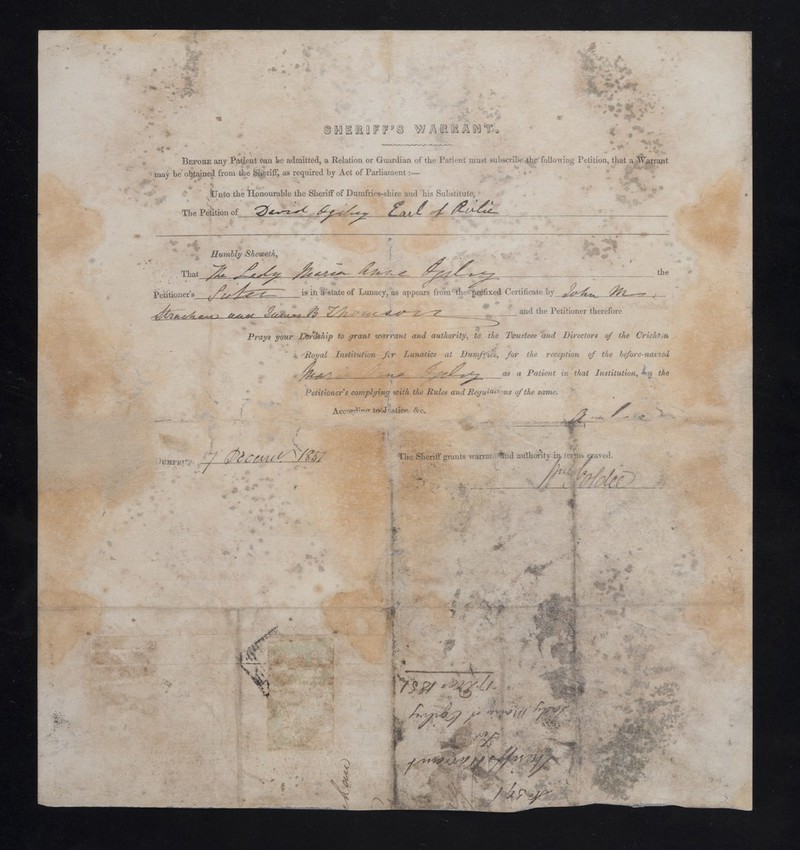 SHERIFF'S WARRANT.
BEFORE any Patient can be admitted, a Relation or Guardian of the Patient must subscribe the following Petition, that a Warrant
may be obtained from the Sheriff, as required by Act of Parliament :—
Unto the Honourable the Sheriff of Dumfries-shire and his Substitute,
The Petition of David Ogilvy Earl of Airlie
Humbly Sheweth,
That The Lady Maria Anne Ogilvy the
Petitioner's Sister is in a state of Lunacy, as appears from the prefixed Certificate by John
Strachan and James B Thomson and the Petitioner therefore
Prays your Lordship to grant warrant and authority, to the Trustees and Directors of the Crichton
Royal Institution for Lunatics at Dumfries, for the reception of the before-named
Maria Anne Ogilvy as a Patient in that Institution, by the
Petitioner's complying with the Rules and Regulations of the same.
According to Justice, &c.
Airlie
DUMFRIES, 17 December 1851 The Sheriff grants warrant and authority in terms craved.
Goldie
Sheriff's Warrant
For
Lady Maria A Ogilvy
17 Dec 1851